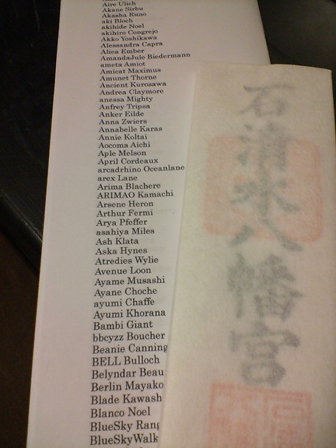 Aire Ulich
Akane Sirbu
Akasha Runo
aki Bloch
akihide Noel
akihiro Congrejo
Akko Yoshikawa
Alessandra Capra
Alica Ember
AmandaJule Biedermann
ameta Amiot
Amicat Maximus
Amunet Thorne
Ancient Kurosawa
Andrea Claymore
anessa Mighty
Anfrey Tripsa
Anker Eilde
Anna Zwiers
Annabelle Karas
Annie Koltai
Aocoma Aichi
Aple Melson
April Cordeaux
arcadrhino Oceanlane
arex Lane
Arima Blachere
ARIMAO Kamachi
Arsene Heron
Arthur Fermi
Arya Pfeffer
asahiya Miles
Ash Klata
Aska Hynes
Atredies Wylie
Avenue Loon
Ayame Musashi
Ayane Choche
ayumi Chaffe
Ayumi Khorana
Bambi Giant
bbcyzz Boucher
Beanie Canning
BELL Bulloch
Belyndar Beau
Berlin Mayako
Blade Kawash
Blanco Noel
BlueSky Rang
BlueSkyWalk
石清水八幡宮